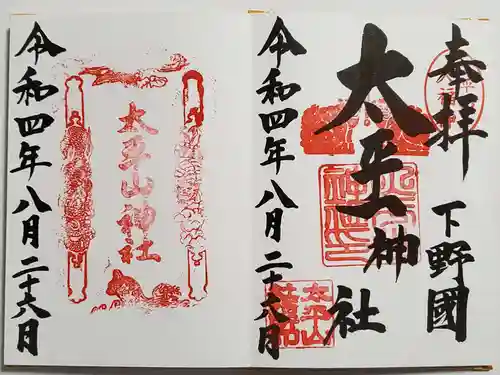 奉拝
下野國
太平神社
令和四年八月二十六日
太平山神社
令和四年八月二十六日